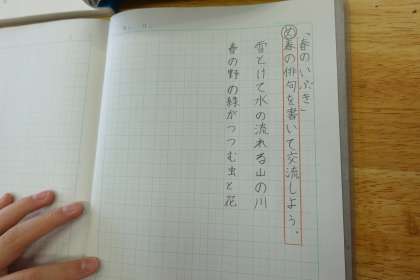 「春のいぶき」
め 春の俳句を書いて交流しよう。
雪とけて水の流れる山の川
春の野の緑がつつむ虫と花